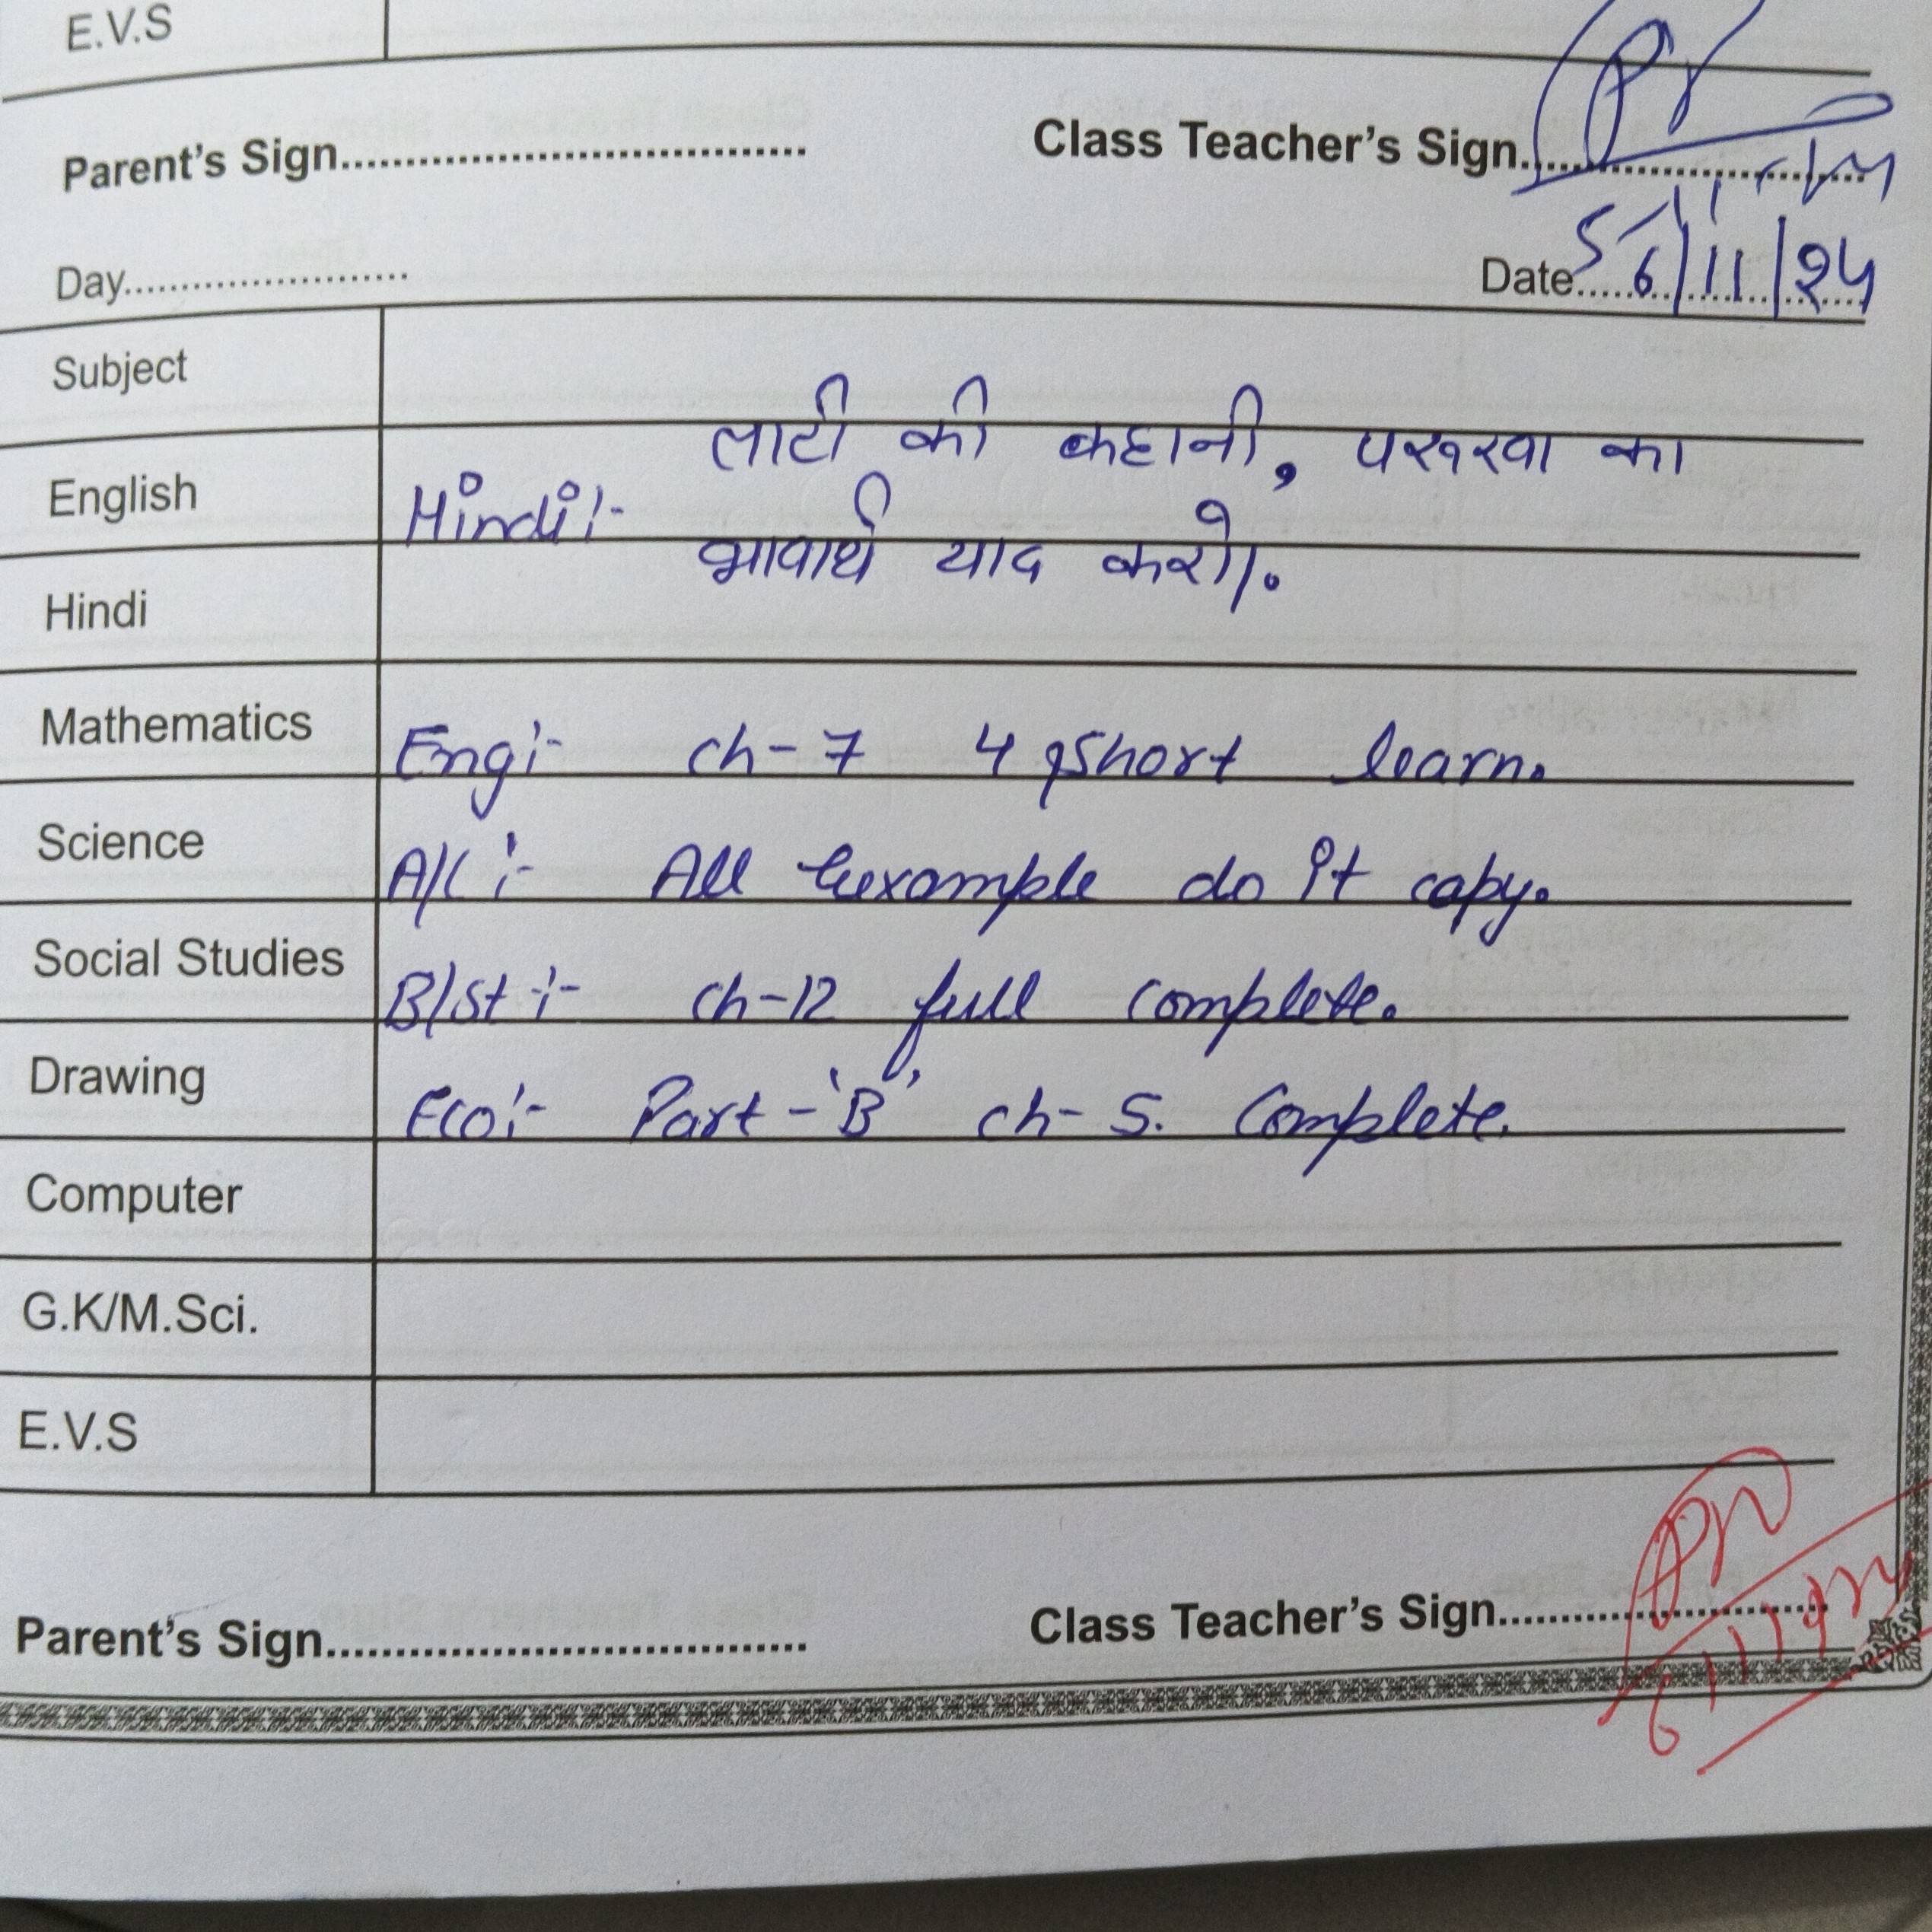 E.V.S
Parent's Sign.................................... Class Teacher's Sign............................
Day...................... Date.....6/11/24
Subject
लाटी की कहानी, परूरवा का
English Hindi:-
भावार्थ याद करो।.
Hindi
Mathematics Eng:- ch-7 4 qshort learn.
Science A/C:- All example do it copy.
Social Studies B/st:- ch-12 full complete.
Drawing Eco:- Part-'B' ch-5. Complete.
Computer
G.K/M.Sci.
E.V.S
Parent's Sign.................................... Class Teacher's Sign............................